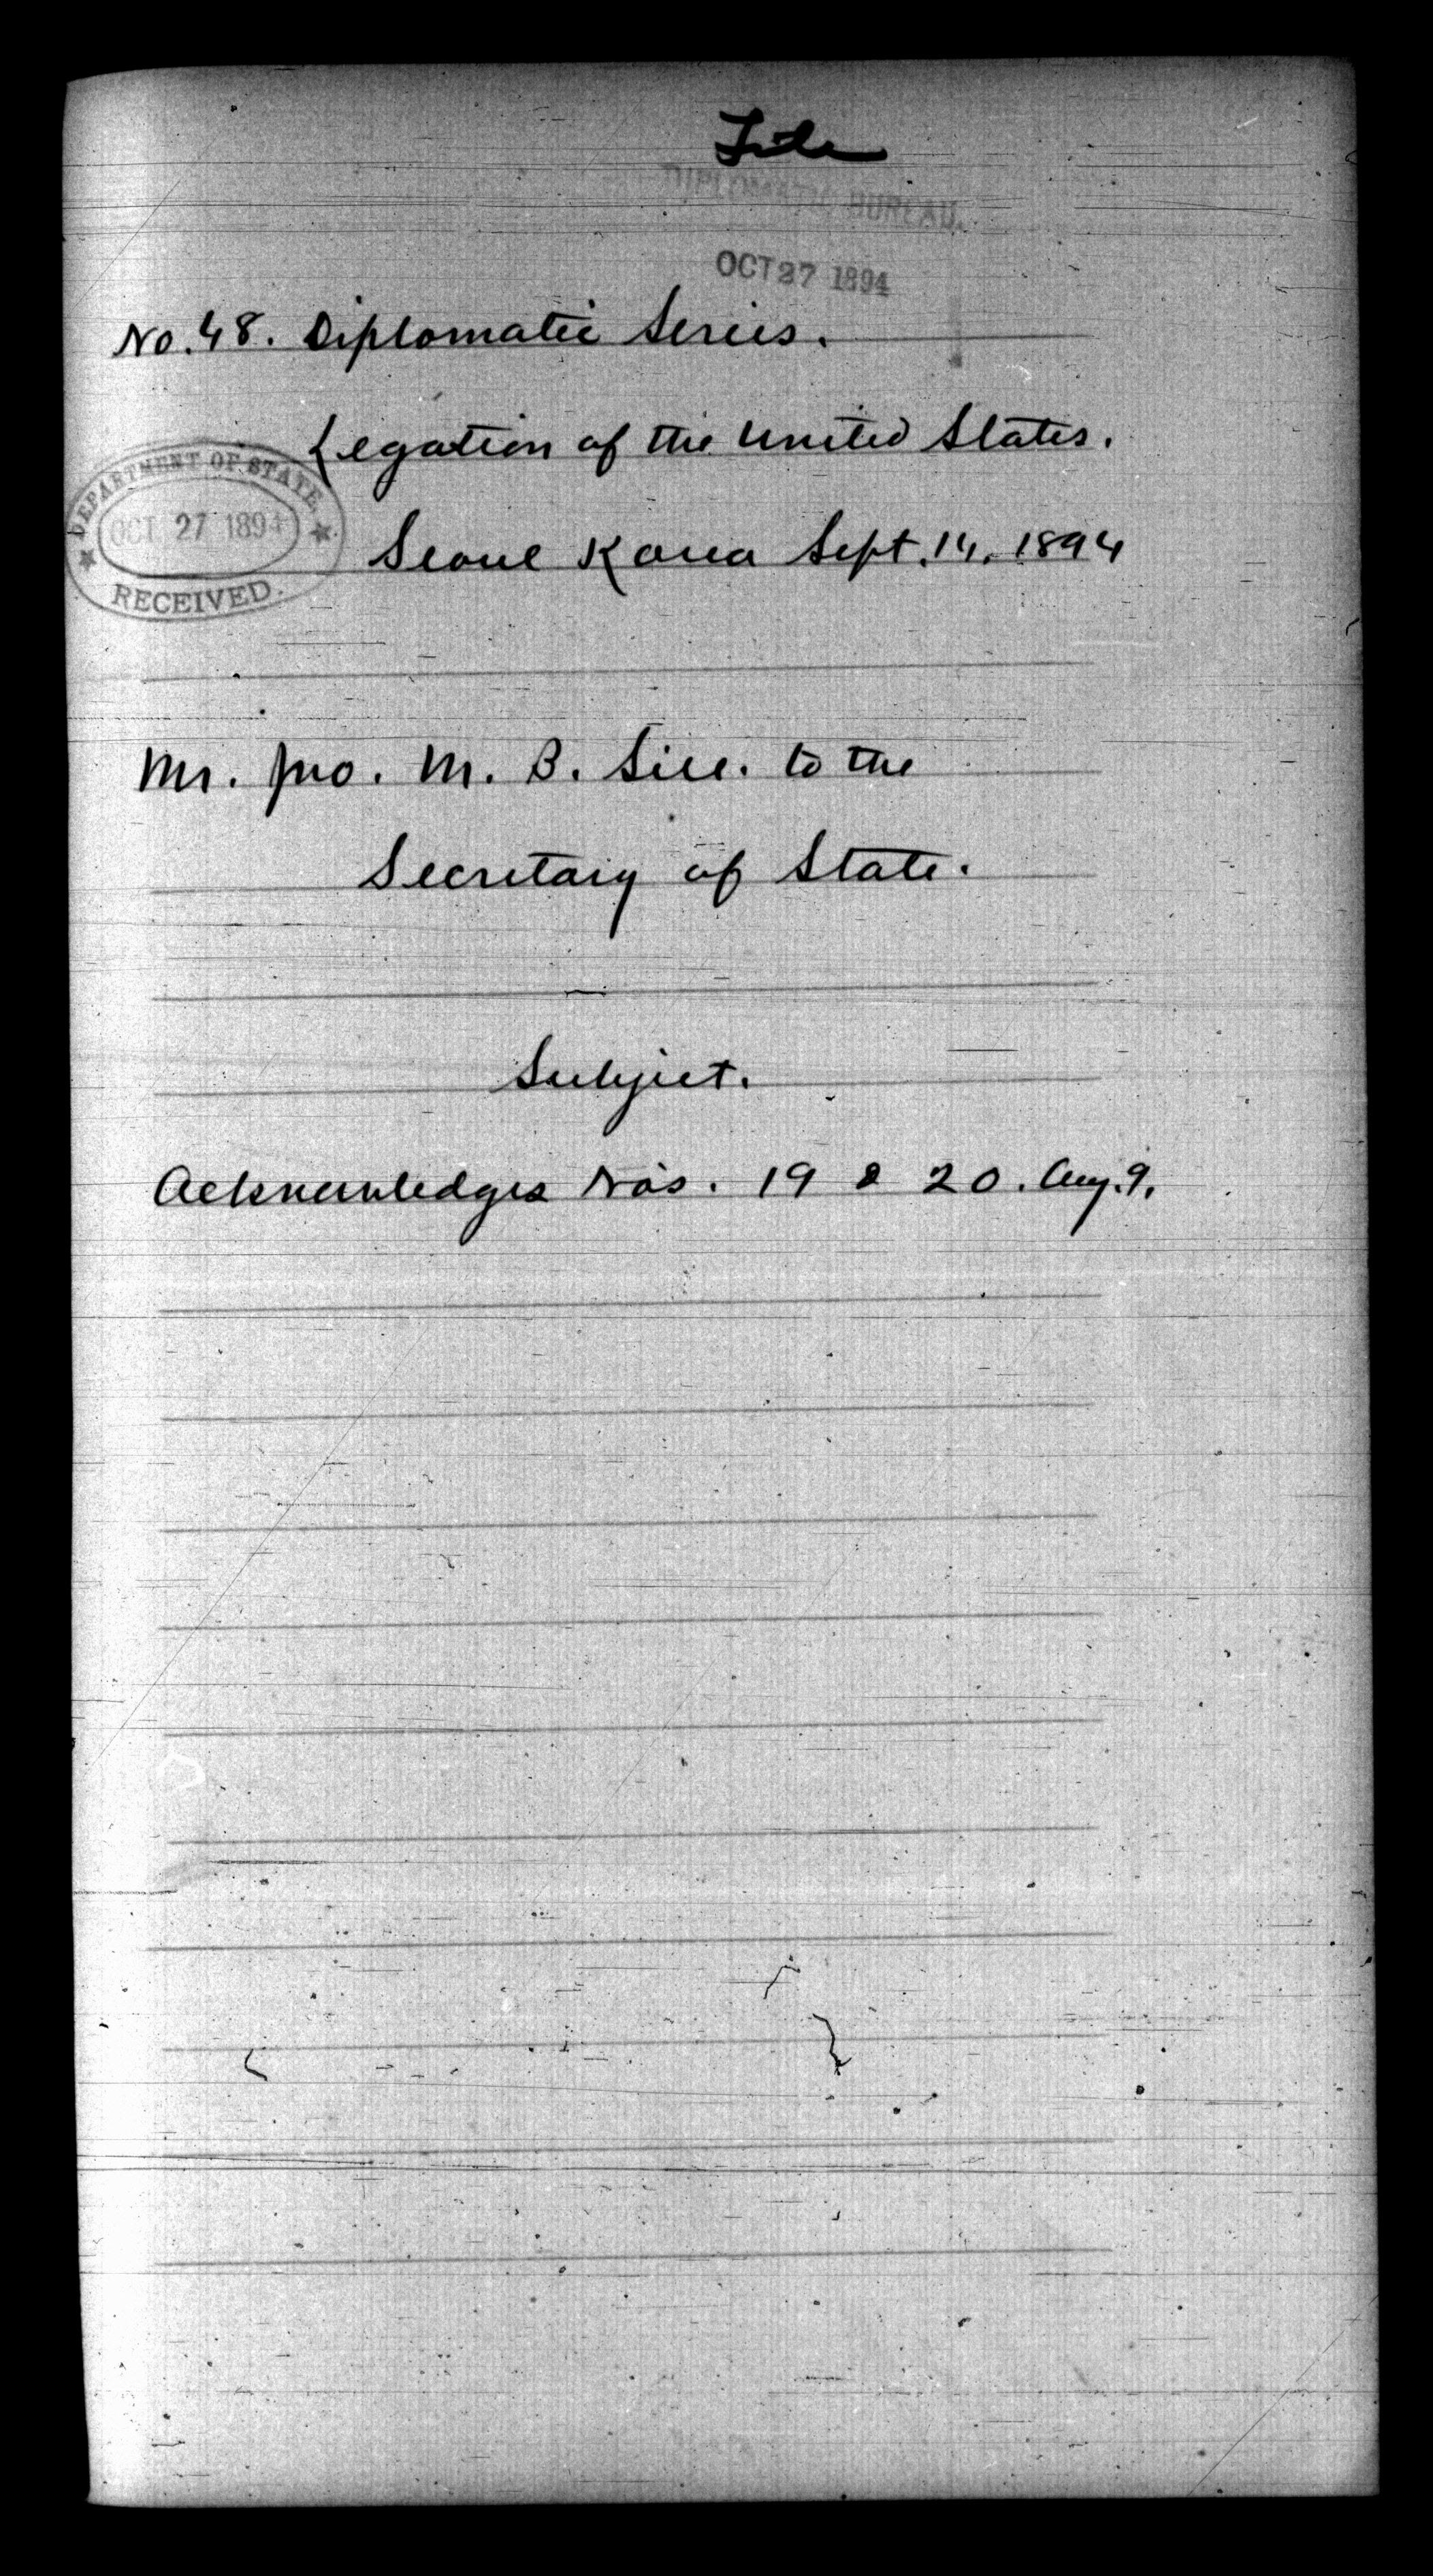 File
DIPLOMATIC BUREAU.
OCT 27 1894
No. 48. Diplomatic Series.
Legation of the United States.
DEPARTMENT OF STATE.
OCT 27 1894
RECEIVED.
Seoul Korea Sept. 14, 1894
Mr. Jno. M. B. Sill. to the
Secretary of State.
Subject.
Acknowledges Nos. 19 & 20. Aug. 9.